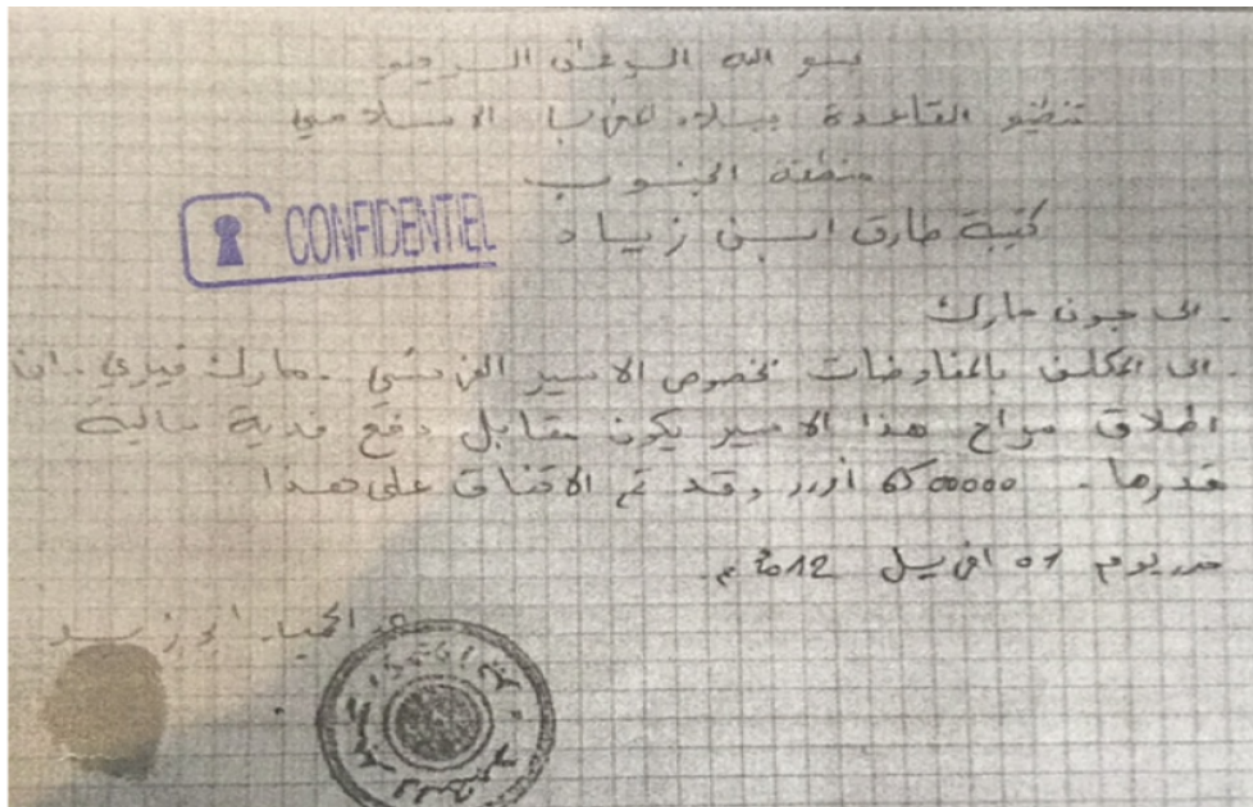 بسم الله الرحمن الرحيم
تنظيم القاعدة ببلاد المغرب الاسلامي
منطقة الجنوب
كتيبة طارق ابن زياد
CONFIDENTIEL
- الى جون مارك
- الى المكلف بالمفاوضات بخصوص الاسير الفرنسي - مارك فيري - ان
اطلاق سراح هذا الاسير يكون مقابل دفع فدية مالية
قدرها - أورو وقد تم الاتفاق على هذا
حرر يوم 01 افريل 2012 م
عبد الحميد ابو زيد